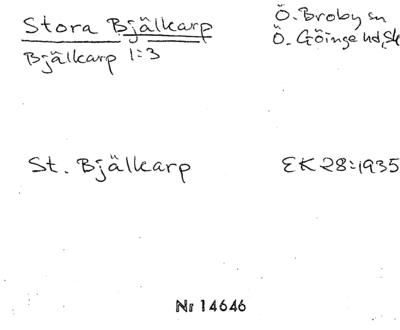 Stora Bjälkarp
Ö. Broby sn
Bjälkarp 1:3
Ö. Göinge hd, Sk
St. Bjälkarp
EK 28:1935
Nr 14646